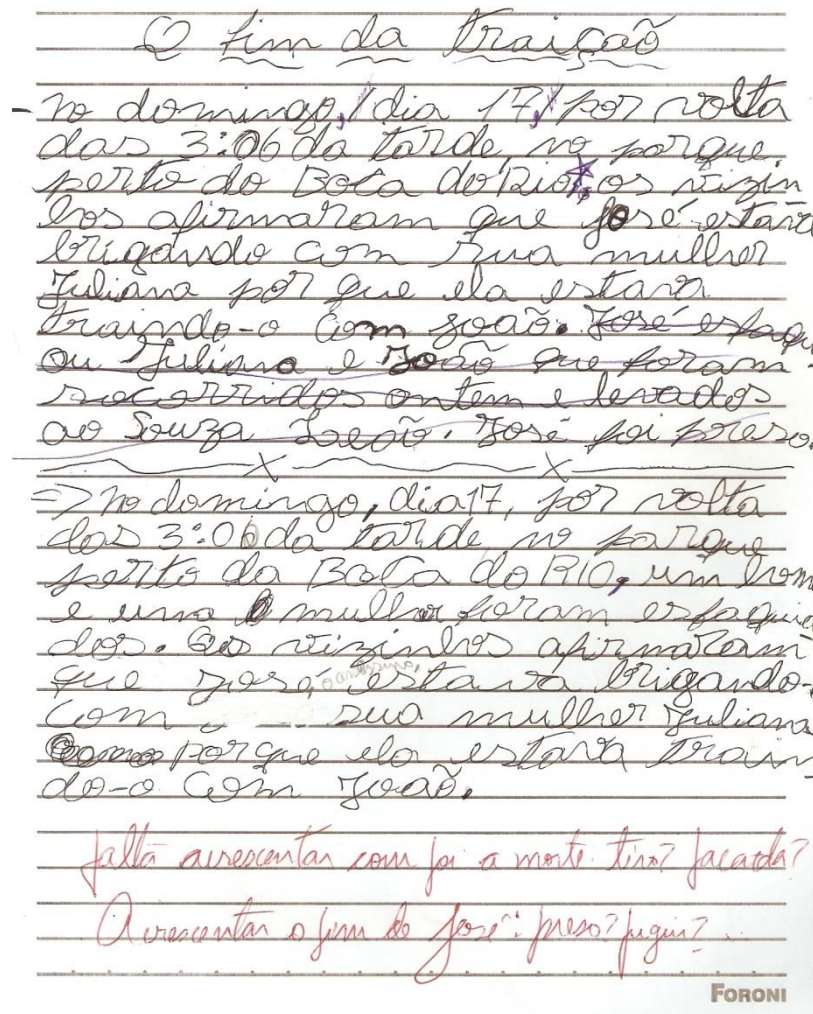 O fim da traição
- No domingo, dia 17, por volta
das 3:06 da tarde, no parque
perto do Boca do Rio, os vizin
hos afirmaram que José estava
brigando com sua mulher
Juliana por que ela estava
traindo-o com João. José esfaque
ou Juliana e João que foram
socorridos ontem e levados
ao Souza Leão. José foi preso.
=> No domingo, dia 17, por volta
das 3:06 da tarde no parque
perto da Boca do RIO, um hom
e uma mulher foram esfaquea
dos. Os vizinhos afirmaram
que José, o assassino, estava brigando-
com sua mulher Juliana
porque ela estava train
do-o com João.
falta acrescentar com foi a morte. tiro? facada?
Acrescentar o fim do José: preso? fugiu?
FORONI